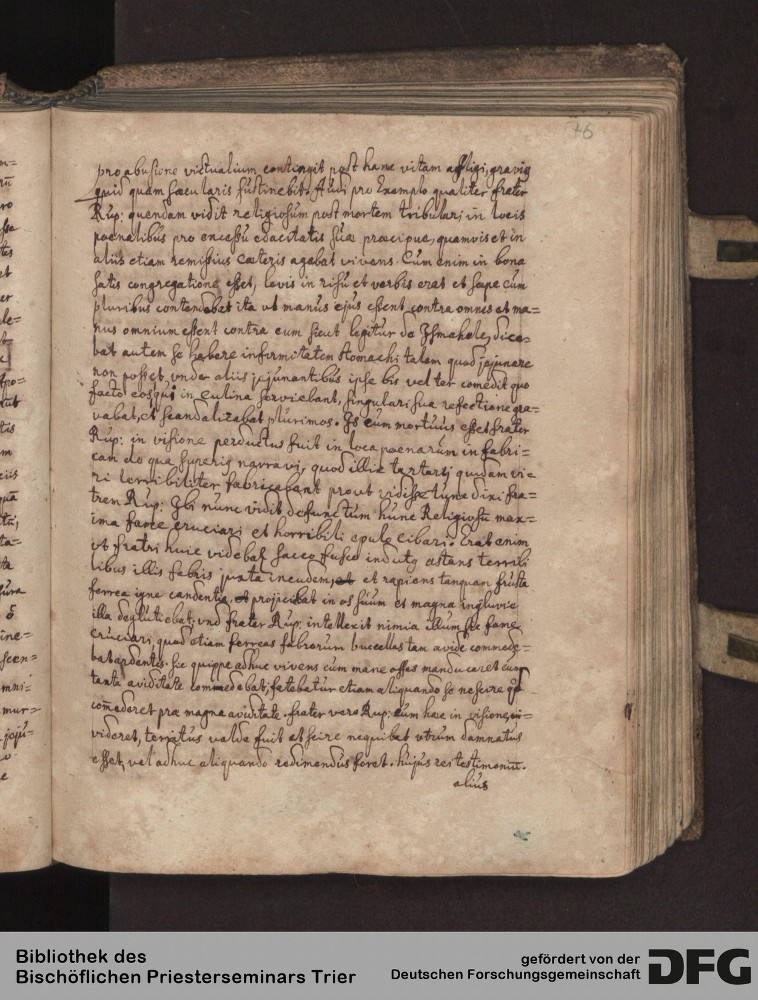 76
pro abusione victualium contingit post hanc vitam affligi, gravius
quid quam sæcularis sustinebit. Audi pro Exemplo qualiter frater
Rup: quendam vidit religiosum post mortem tribulari in locis
pœnalibus pro excessu edacitatis suæ præcipue, quamvis et in
aliis etiam remissius cæteris agebat vivens. Cum enim in bona
satis congregatione esset, levis in risu et verbis erat et sæpe cum
pluribus contendebat ita ut manus ejus essent contra omnes et ma=
nus omnium essent contra eum sicut legitur de Ismahele, dice=
bat autem se habere infirmitatem stomachi talem quod jejunare
non posset, vnde aliis jejunantibus ipse bis vel ter comedit quo
facto eos qui in culina serviebant, singulari sua refectione gra=
vabat, et scandalizabat plurimos. Is cum mortuus esset frater
Rup: in visione perductus fuit in loca pœnarum in fabri=
cam de qua superius narravi, quod illic tartarei quidam vi=
ri terribiliter fabricabant prout vidisse tunc dixi fra=
trem Rup: Ibi nunc vidit defunctum hunc Religiosū max=
ima fame cruciari et horribili epulo cibari. Erat enim
vt fratri huic videbat sacco fusco indutq astans terribi
libus illis fabris juxta incudem, et rapiens tanquam frusta
ferrea igne candentia, projiciebat in os suum et magna ingluvie
illa deglutiebat, vnd frater Rup: intellexit nimia illum sic fame
cruciari, quod etiam ferreas fabrorum buccellas tam avide commede=
bat ardentes. sic quippe adhuc vivens cum mane offas manducaret cum
tanta aviditate commedebat, fatebatur etiam aliquando se nescire qd
comederet præ magna aviditate. frater vero Rup: cum hæc in visione, in=
videret, territus valde fuit et scire nequibat vtrum damnatus
esset, vel adhuc aliquando redimendus foret. hujus rei testimoniū.
alius
Bibliothek des
Bischöflichen Priesterseminars Trier
gefördert von der
Deutschen Forschungsgemeinschaft
DFG